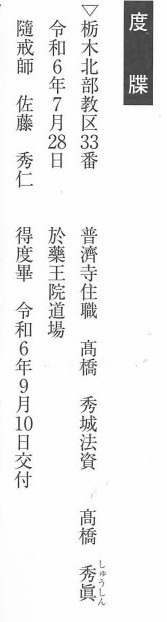 度牒
▽栃木北部教区33番 普濟寺住職 髙橋 秀城法資 髙橋 秀眞
しゅうしん
令和6年7月28日 於藥王院道場
隨戒師 佐藤 秀仁 得度畢 令和6年9月10日交付